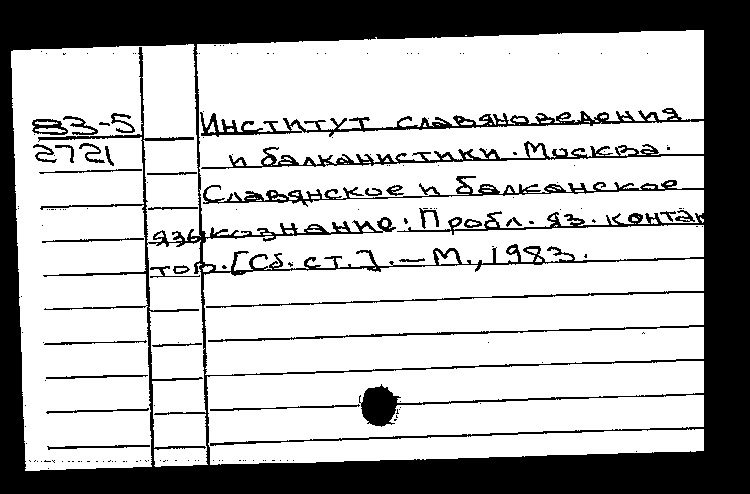 83-5 Институт славяноведения
2721 и балканистики. Москва.
Славянское и балканское
языкознание: Пробл. яз. контак
тов. [Сб. ст.]. – М., 1983.